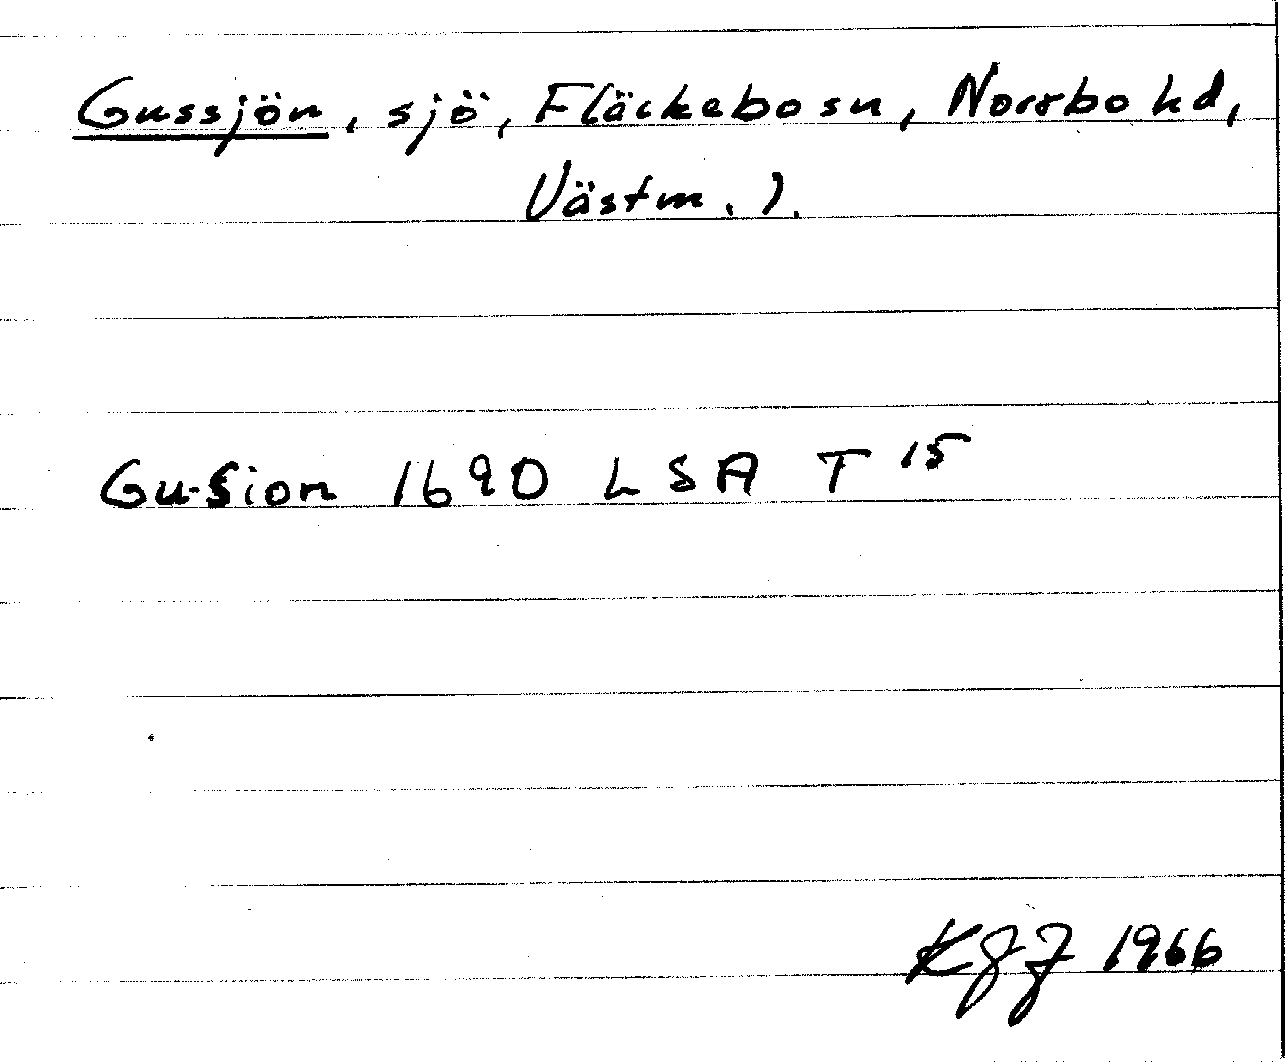 Gussjön, sjö, Fläckebo sn, Norrbo hd,
Västm.).
Gusion 1690 LSA T 15
KGJ 1966